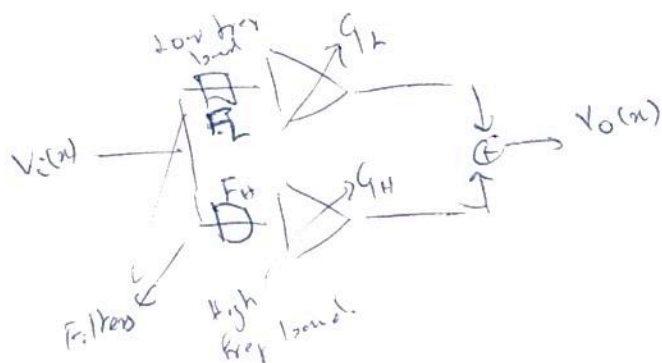 Low freq
band
G_L
F_L
V_i(x)
V_o(x)
F_H
G_H
Filters
High
freq band.